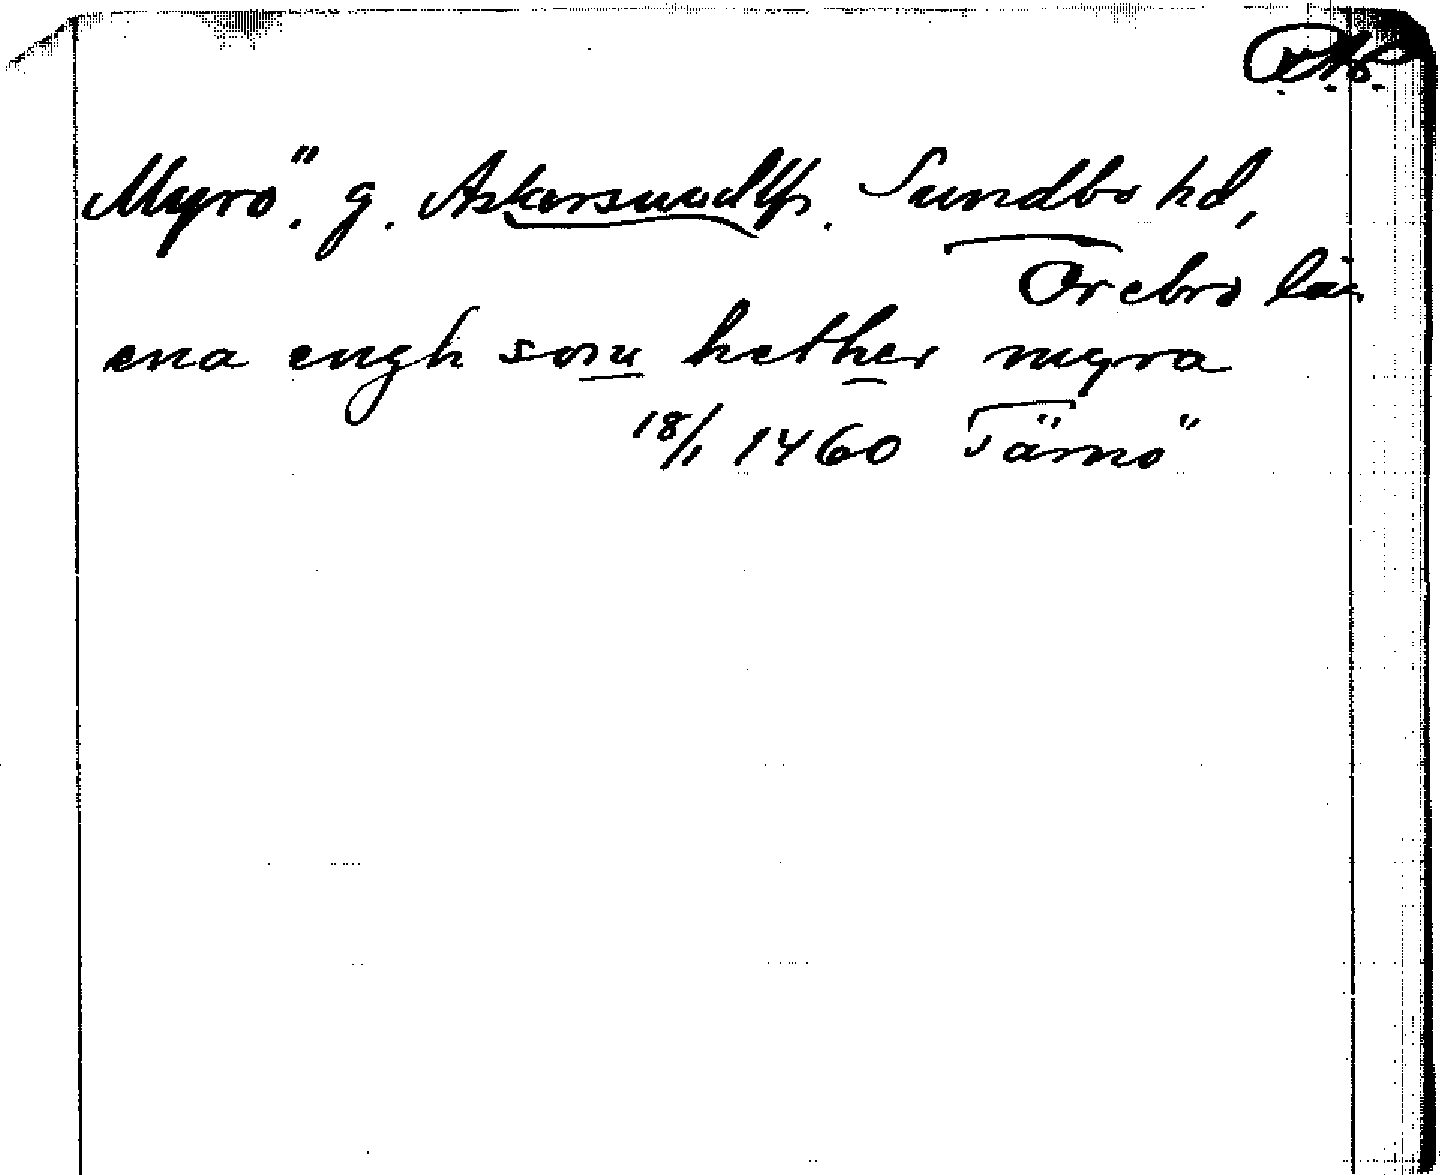 Myrö. g. Askersundlfs. Sundbo hd,
Örebro län
ena engh som hether myra
18/1 1460 Tärnö